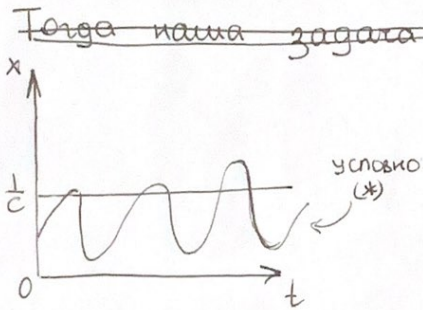 Тогда наша задача
x
1/c
условно
(*)
0
t